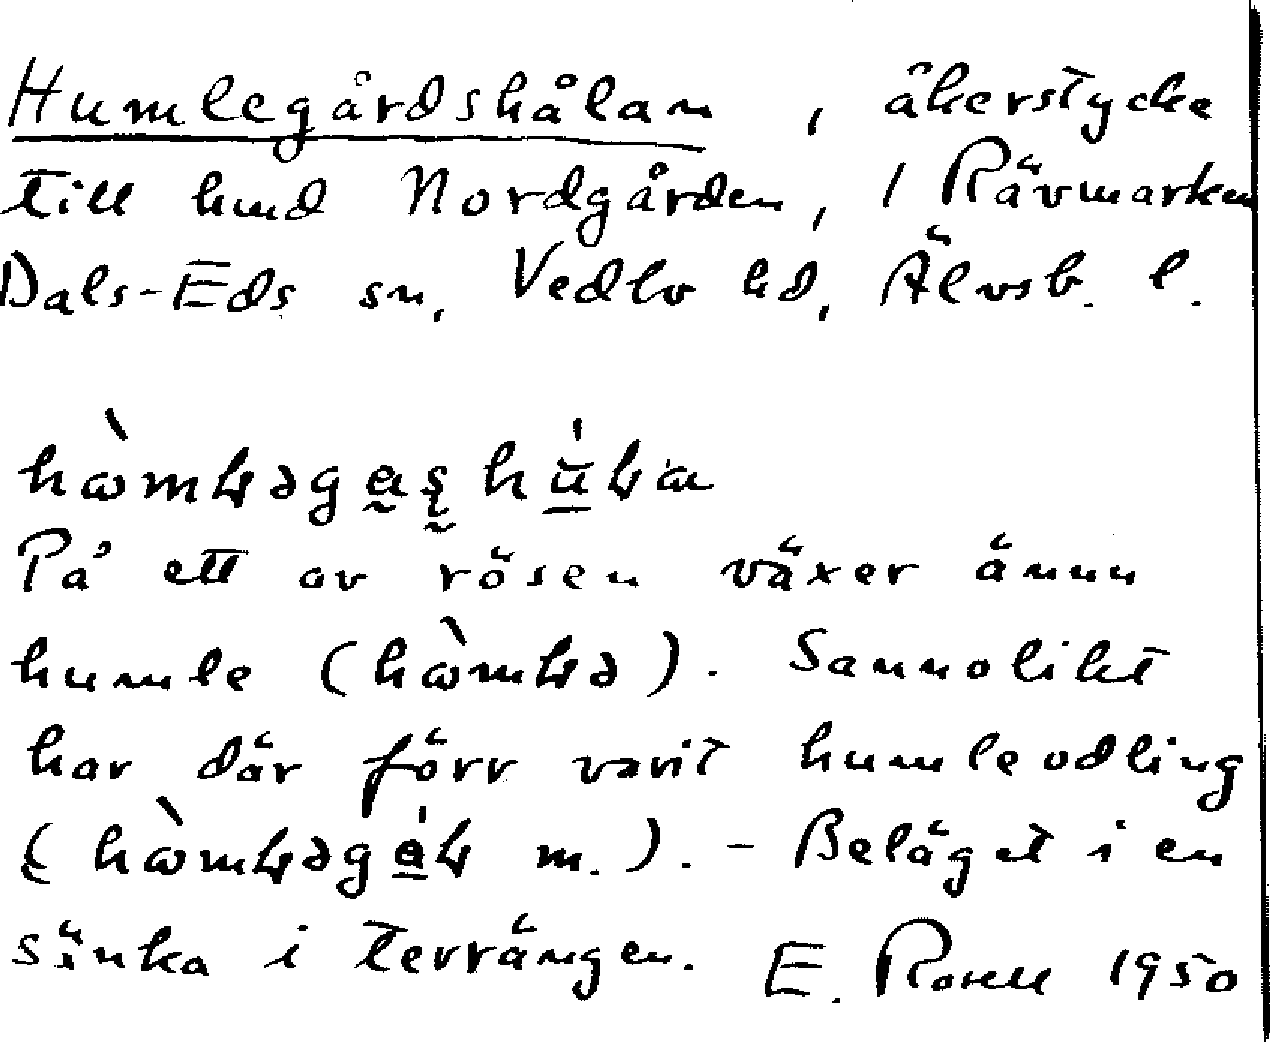 Humlegårdshålan, åkerstycke
till hmd Nordgården, 1 Rävmarken
Dals-Eds sn, Vedbo hd, Älvsb. l.
På ett av rösen växer ännu
humle ( ). Sannolikt
har där förr varit humleodling
( m.). - Beläget i en
sänka i terrängen. E. Rosell 1950